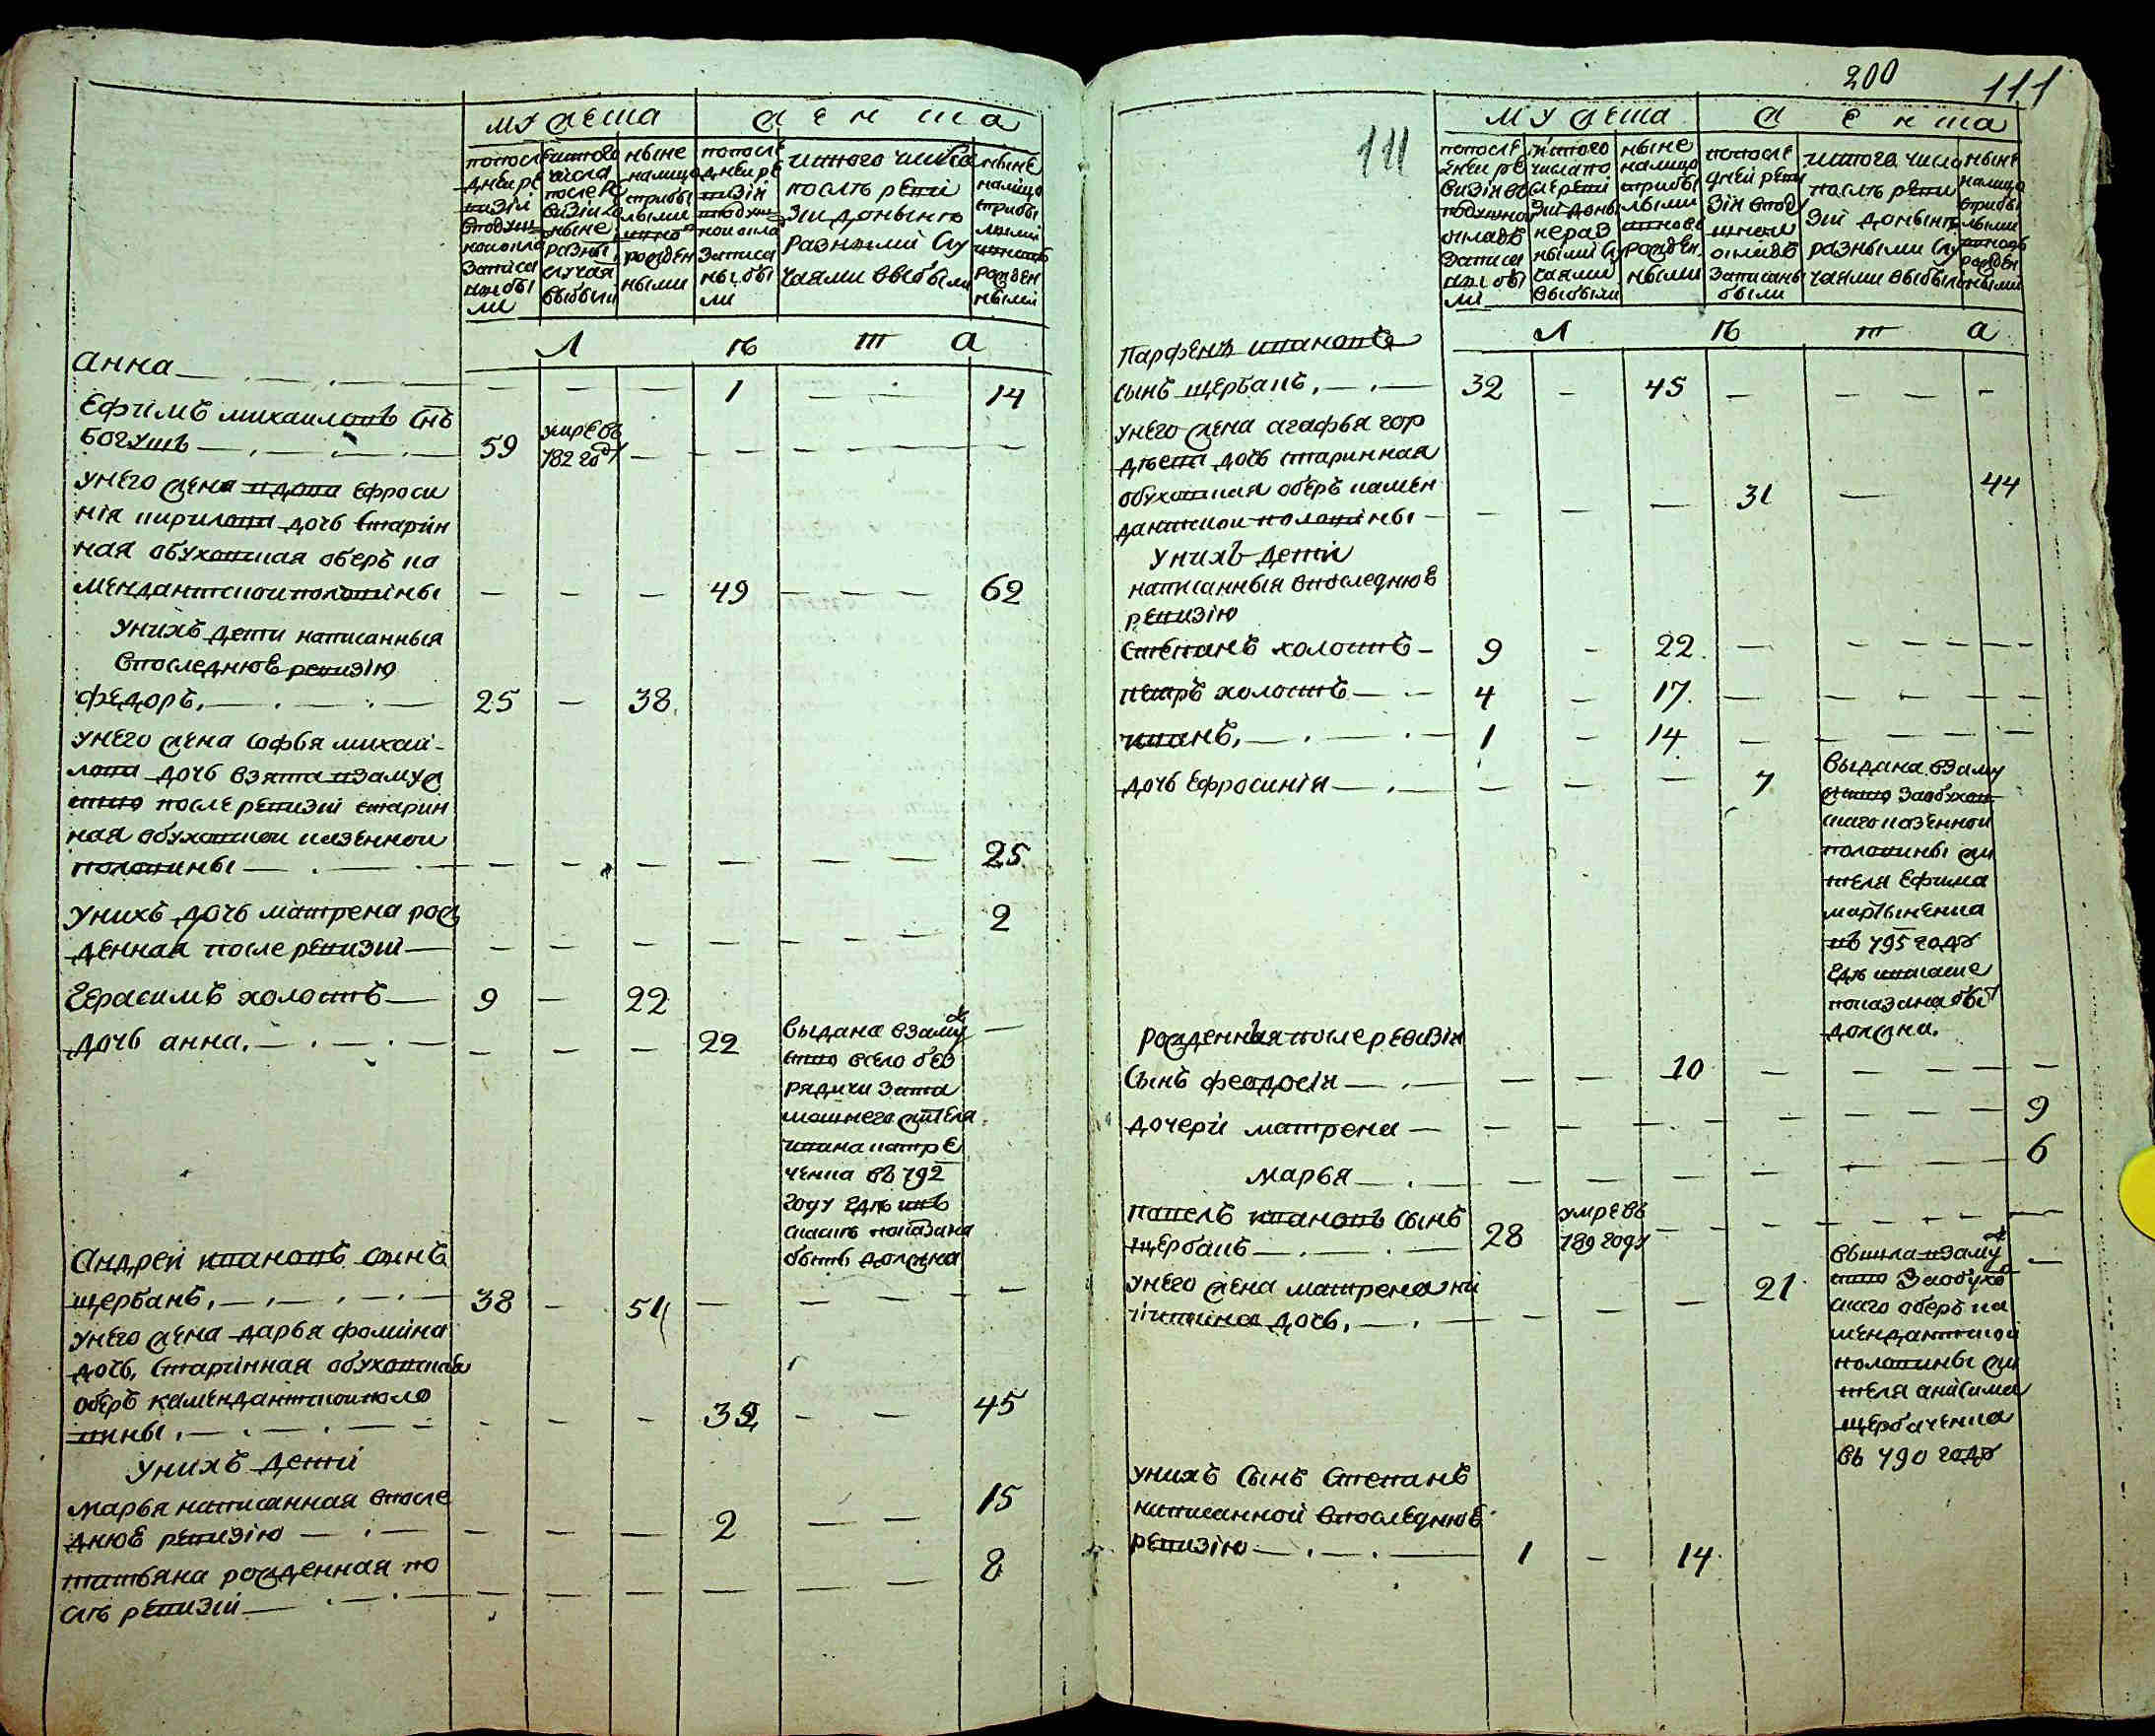 мужеска женска
попосле днеи ре визiи вподуш номокла записа ны бы ли
изтого числа после ре визiи до ныне разны случая выбыли
ныне налицо сприбы лыми ивно рожден ными
попосле днеи ре визiи вподуш номокла записа ны бы ли
изтого числа послѣ реви зiи донынѣ разными слу чаями выбыли
ныне налицо сприбы лыми ивновь рожден ными
Л ѣ т а
анна — — — — 1 — — 14
Ефимъ михаиловъ снъ
богушъ — 59 умре въ 782 году — — — — — —
унего жена вдова ефроси
нiя кирилова дочь старин
ная обуховская оберъ ко
мендантскои половiны — — — 49 — — — 62
унихъ дети написанныя
впоследнюѣ ревизiю
федоръ, — 25 — 38
унего жена софья михаи-
лова дочь взята взамуж
ство после ревизiи старин
ная обуховскои казеннои
половины — — — — — — — 25
унихъ дочь матрена рож
денная после ревизiи — — — — — — — 2
Герасимъ холостъ — 9 — 22
дочь анна. — — — — 22 выдана взамуж —
ство всело бео
рядичи зата
мошнего жителя
ивана катре
ченка въ 792
году гдѣ ивъ
скаскѣ показана
быть должна
Андреи ивановъ сынъ
щербанъ, — 38 — 51 — — — —
унего жена дарья фомина
дочь, старiнная обуховская
оберъ камендантскои поло
вины, — — — 32 — — 45
унихъ детi
марья написанная впосле
днюѣ ревизiю — — — — 2 — — 15
татьяна рожденная по
слѣ ревизiи — — — — — — — 8
200 111
111
мужеска женска
попослѣ днеи ре визiи въ подушно окладѣ записа ны бы ли
изтого числа по слереви зiи донын не раз ными слу чаями выбыли
ныне налицо сприбы лыми ивнове рожден ными
попосле днеи реви зiи впод ушном окладѣ записаны были
изтого число послѣ реви зiи донынѣ разными слу чаями выбыли
ныне налицо сприбы лыми ивновь рожден ными
Л ѣ т а
Парфенъ ивановъ
сынъ щербанъ, — 32 — 45 — — — —
унего жена агафья гор
дѣева дочь старинная
обуховская оберъ камен
данткои половiны — — — — 31 — 44
унихъ дети
написанныя впоследнюѣ
ревизiю
степанъ холостъ — 9 — 22 — — — — —
петръ холостъ — 4 — 17 — — — — —
иванъ, — 1 — 14 — — — — —
дочь ефросинiя — — — — 7 выдана взаму
жство заобухов
скаго казеннои
половины жи
теля Ефима
мартыненка
въ 795 годѣ
гдѣ
показана быт
должна.
рожденныя после ревизiи
сынъ феодосiи — — — 10 — — — —
дочери матрена — — — — — — — — 9
марья — — — — — — — — 6
павелъ ивановъ сынъ
щербанъ — 28 умре въ 789 году — — — — — —
унего жена матрена ни
кiтина дочь, — — — — 21 вышла взамуж —
ство заобухо
скаго оберъ ка
мендантскои
половины жи
теля анисима
щербаченка
въ 790 годѣ
унихъ сынъ степанъ
написанной впоследнюѣ
ревизiю — 1 — 14